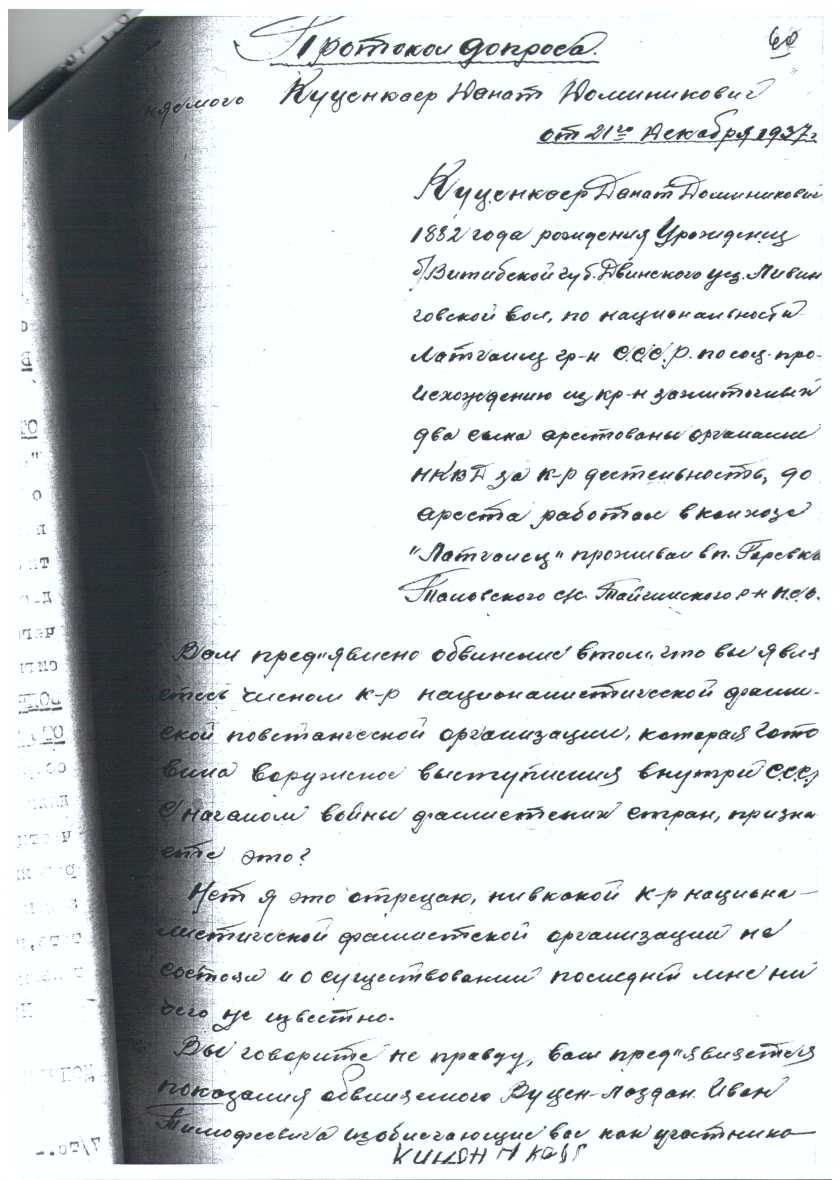 Протокол допроса.
60
Куценкаер Данат Доминикович
от 21го Декабря 1937г
Куценкаер Данат Доминикович
1882 года рождения Урожденец
б/Витибской губ. Двинского уез. Ливен
говской вол, по национальности
Латгалец гр-н С.С.С.Р. по соц. про-
исхождению из кр-н зажиточных
два сына арестованы органами
НКВД за к-р деятельность, до
ареста работал в колхозе
"Латгалец" проживал в п.
Таловского с/с. Тайгинского р-н Н.С.О.
Вам пред"явлено обвинение в том, что вы явля
етесь членом к-р националистической фашист-
ской повстанческой организации, которая гото
вила воружное выступления внутри СССР
с началом войны фашистских стран, призна
ете это?
Нет я это отрецаю, ни в какой к-р национа-
листической фашистской организации не
состоял и о существовании последней мне ни
чего не известно.
Вы говорите не правду, вам пред"является
показания обвиняемого Вуцен-Лаздан Иван
Тимофеевича изобличающие вас как участника